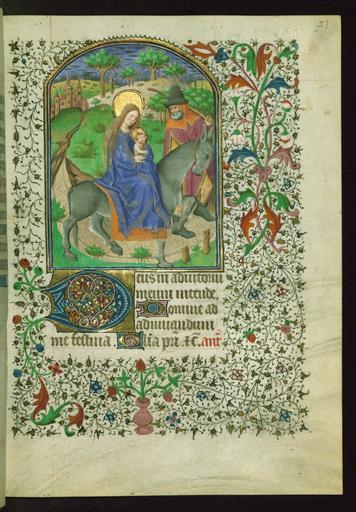 Deus in adiutoriu
meum intende.
Domine ad
adiuuandum
me festina. Gl'ia pri. &c. ant'